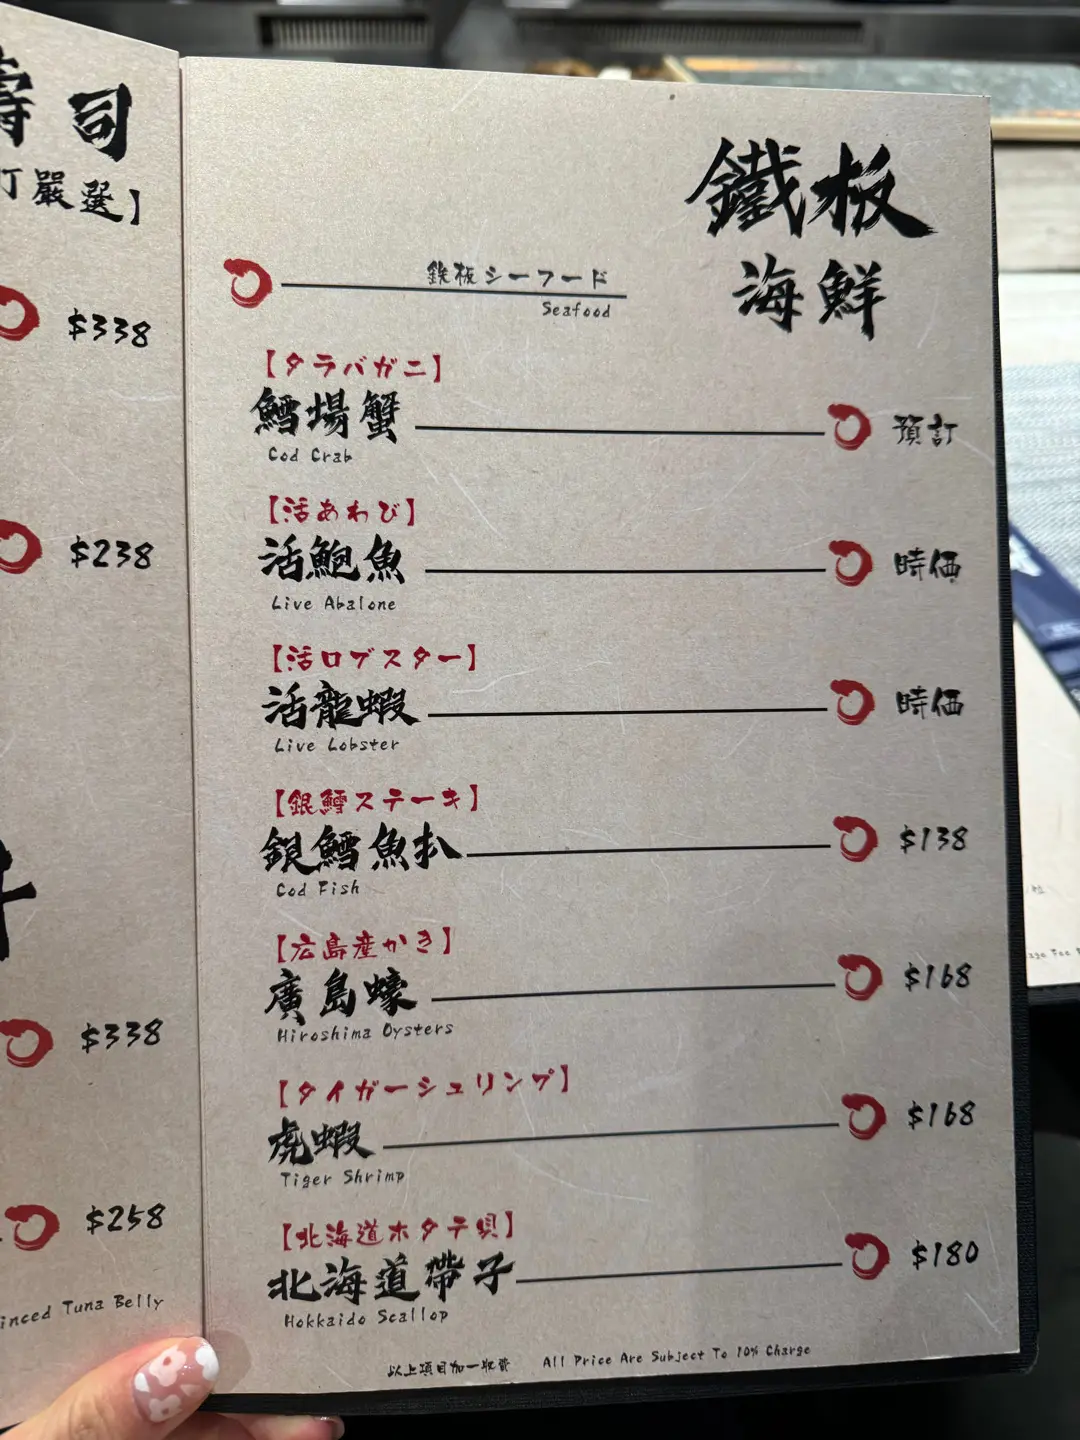 壽司
訂嚴選】
$338
$238
$338
$258
inced Tuna Belly
鐵板
海鮮
鉄板シーフード
Seafood
【タラバガニ】
鱈場蟹
預訂
Cod Crab
【活あわび】
活鮑魚
時価
Live Abalone
【活ロブスター】
活龍蝦
時価
Live Lobster
【銀鱈ステーキ】
銀鱈魚扒
$138
Cod Fish
【広島産かき】
廣島蠔
$168
Hiroshima Oysters
【タイガーシュリンプ】
虎蝦
$168
Tiger Shrimp
【北海道ホタテ貝】
北海道帶子
$180
Hokkaido Scallop
以上項目加一收費 All Price Are Subject To 10% Charge